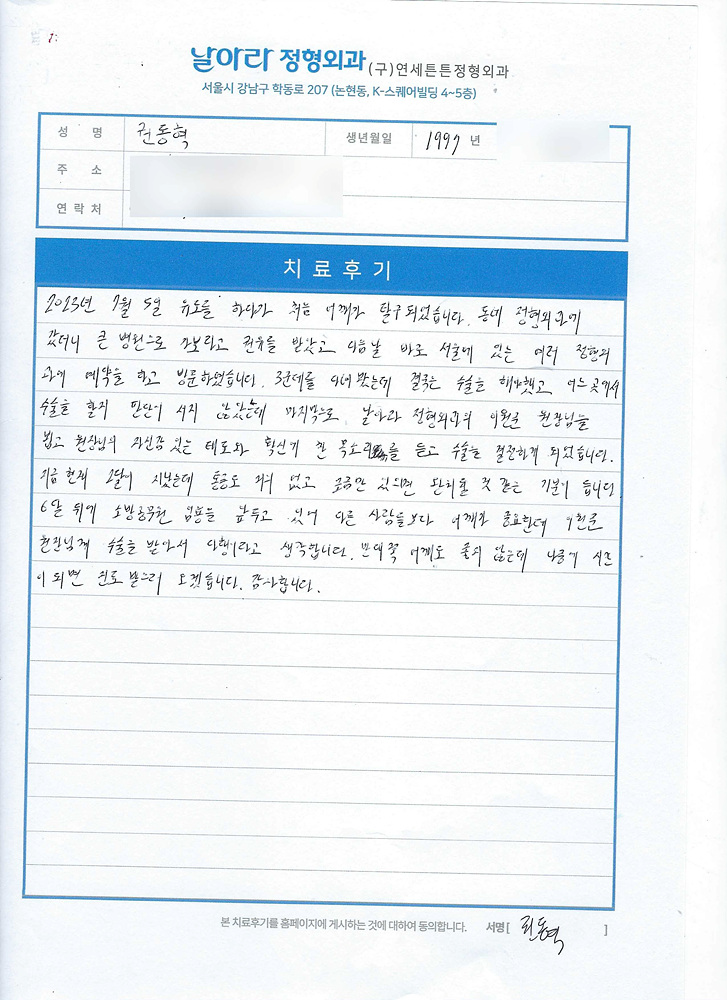 날아라 정형외과 (구)연세튼튼정형외과
서울시 강남구 학동로 207 (논현동, K-스퀘어빌딩 4~5층)
성 명 권동혁 생년월일 1997 년
주 소
연 락 처
치 료 후 기
2023년 7월 5일 유도를 하다가 처음 어깨가 탈구되었습니다. 동네 정형외과에
갔더니 큰 병원으로 가보라고 권유를 받았고 다음날 바로 서울에 있는 여러 정형외
과에 예약을 하고 방문하였습니다. 3군데를 다녀봤는데 결국은 수술을 해야했고 어느 곳에서
수술을 할지 판단이 서지 않았는데 마지막으로 날아라 정형외과의 이원준 원장님을
뵙고 원장님의 자신감 있는 태도와 확신에 찬 목소리를 듣고 수술을 결정하게 되었습니다.
지금 현재 2달이 지났는데 통증도 거의 없고 조금만 있으면 완치될 것 같은 기분이 듭니다.
6일 뒤에 소방공무원 임용을 앞두고 있어 다른 사람들보다 어깨가 중요한데 이원준
원장님께 수술을 받아서 다행이라고 생각합니다. 반대쪽 어깨도 좋지 않은데 나중에 시즌
이 되면 진료 받으러 오겠습니다. 감사합니다.
본 치료후기를 홈페이지에 게시하는 것에 대하여 동의합니다. 서명 [ 권동혁 ]